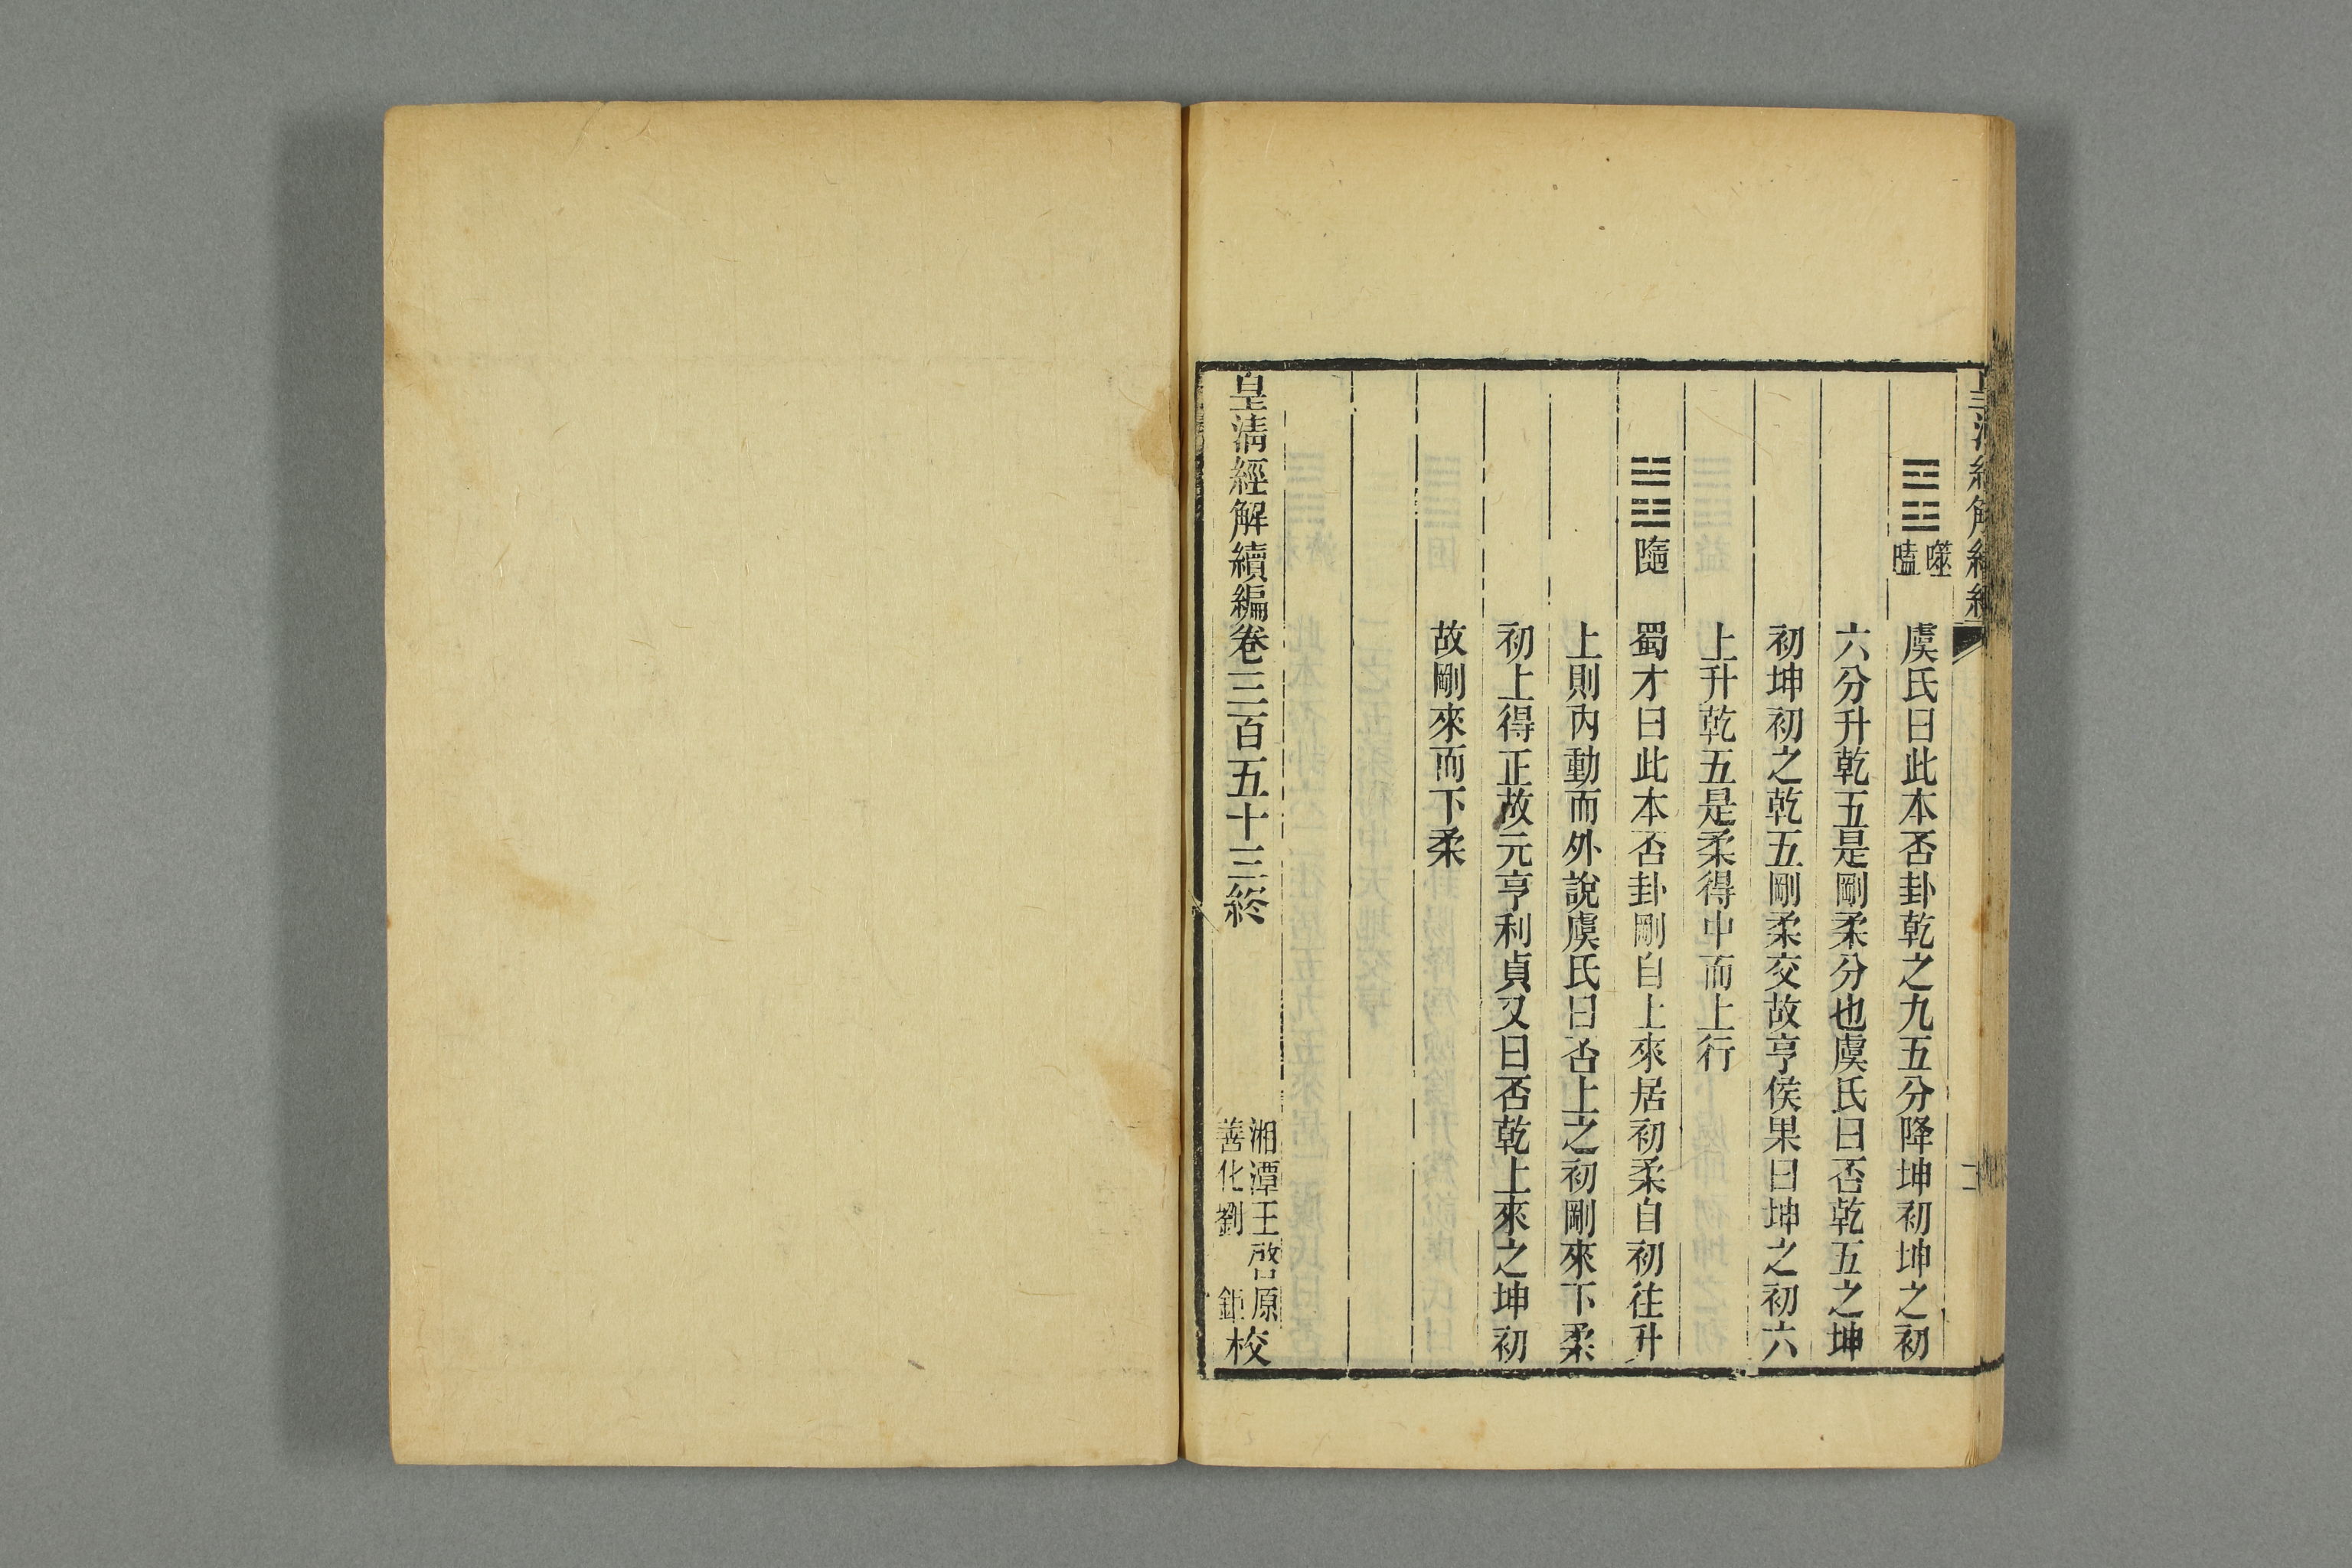 皇清經解續編
二
䷔噬嗑
虞氏曰此本否卦乾之九五分降坤初坤之初
六分升乾五是剛柔分也虞氏曰否乾五之坤
初坤初之乾五剛柔交故亨侯果曰坤之初六
上升乾五是柔得中而上行
䷐隨
蜀才曰此本否卦剛自上來居初柔自初往升
上則內動而外說虞氏曰否上之初剛來下柔
初上得正故元亨利貞又曰否乾上來之坤初
故剛來而下柔
皇清經解續編卷三百五十三終
湘潭王啓原
善化劉鉅
校